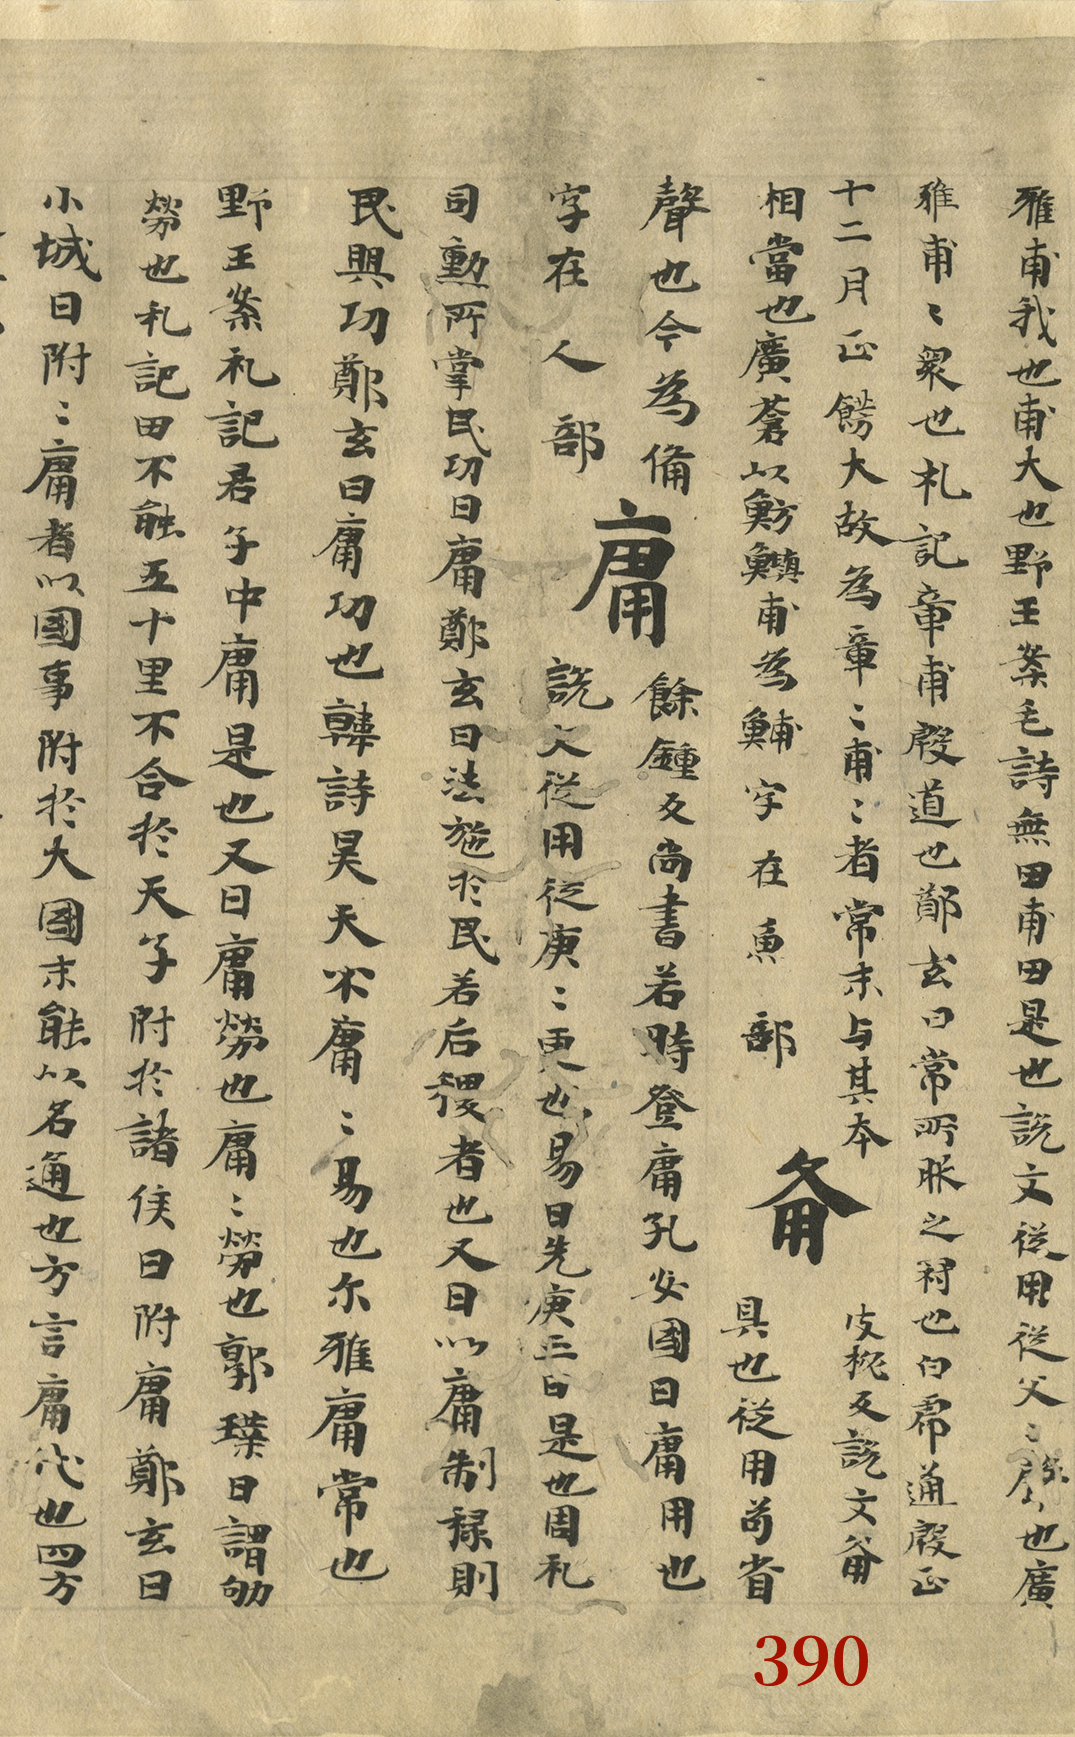 雅甫我也甫大也野王案毛詩無田甫田是也說文從用從父〻聲也廣
雅甫〻衆也礼記章甫殷道也鄭玄曰常所服之冠也白席通殷正
十二月正餝大故為章〻甫〻者常未与其本
相當也廣蒼以魴鱮甫為鯆字在魚部
㔨
皮秘反說文㔨
具也從用苟省
聲也今為俻
字在人部
庸
餘鍾反尚書若時登庸孔安國曰庸用也
說文從用從庚〻更也易曰先庚三日是也周礼
司勳所掌民功曰庸鄭玄曰法施於民若后稷者也又曰以庸制禄則
民興功鄭玄曰庸功也韓詩昊天不庸〻易也尓雅庸常也
野王案礼記君子中庸是也又曰庸勞也庸〻勞也郭璞曰謂劬
勞也礼記田不能五十里不合於天子附於諸侯曰附庸鄭玄曰
小城曰附〻庸者以國事附於大國未能以名通也方言庸代也四方
390